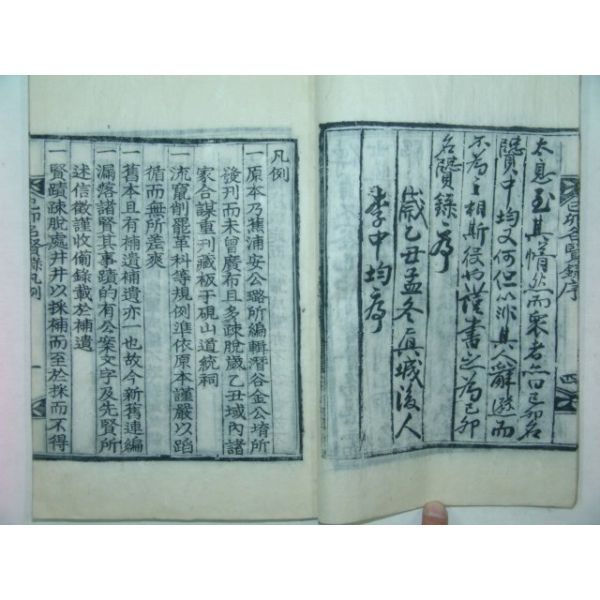 己卯名賢錄序 四
中均又何但以非其人辭遜而
不爲之相斯役也謹書之爲己卯
名賢錄序
歲乙丑孟冬眞城後人
李中均序
凡例
一原本乃蕉浦安公璐所編輯潛谷金公堉所
發刊而未曾廣布且多疎脫歲乙丑域內諸
家合謀重刊藏板于硯山道統祠
一流竄削罷革科等規例準依原本謹嚴以蹈
循而無所差爽
一舊本且有補遺補遺亦一也故今新舊連編
一漏落諸賢其事蹟的有公案文字及先賢所
述信徵謹收備錄載於補遺
一賢蹟疎脫處井井以採補而至於採而不得
己卯名賢錄凡例 一